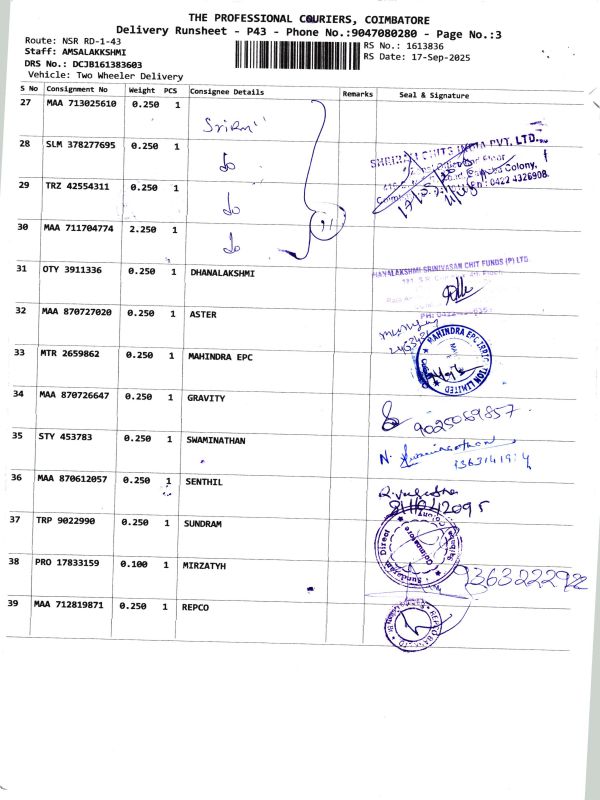 THE PROFESSIONAL COURIERS, COIMBATORE
Delivery Runsheet - P43 - Phone No.:9047080280 - Page No.:3
Route: NSR RD-1-43
RS No.: 1613836
Staff: AMSALAKKSHMI
RS Date: 17-Sep-2025
DRS No.: DCJB161383603
Vehicle: Two Wheeler Delivery
S No Consignment No Weight PCS Consignee Details Remarks Seal & Signature
27 MAA 713025610 0.250 1
28 SLM 378277695 0.250 1 do
CHITS INDIA PVT. LTD.
Colony,
0422 4326908
29 TRZ 42554311 0.250 1 do
30 MAA 711704774 2.250 1 do
31 OTY 3911336 0.250 1 DHANALAKSHMI
DHANALAKSHMI SRINIVASAN CHIT FUNDS (P) LTD
32 MAA 870727020 0.250 1 ASTER
33 MTR 2659862 0.250 1 MAHINDRA EPC
MAHINDRA EPC IRRIGATION LIMITED
34 MAA 870726647 0.250 1 GRAVITY
9025069857
35 STY 453783 0.250 1 SWAMINATHAN
36 MAA 870612057 0.250 1 SENTHIL
37 TRP 9022990 0.250 1 SUNDRAM
Sundaram Direct
Coimbatore
38 PRO 17833159 0.100 1 MIRZATYH
9363222922
39 MAA 712819871 0.250 1 REPCO